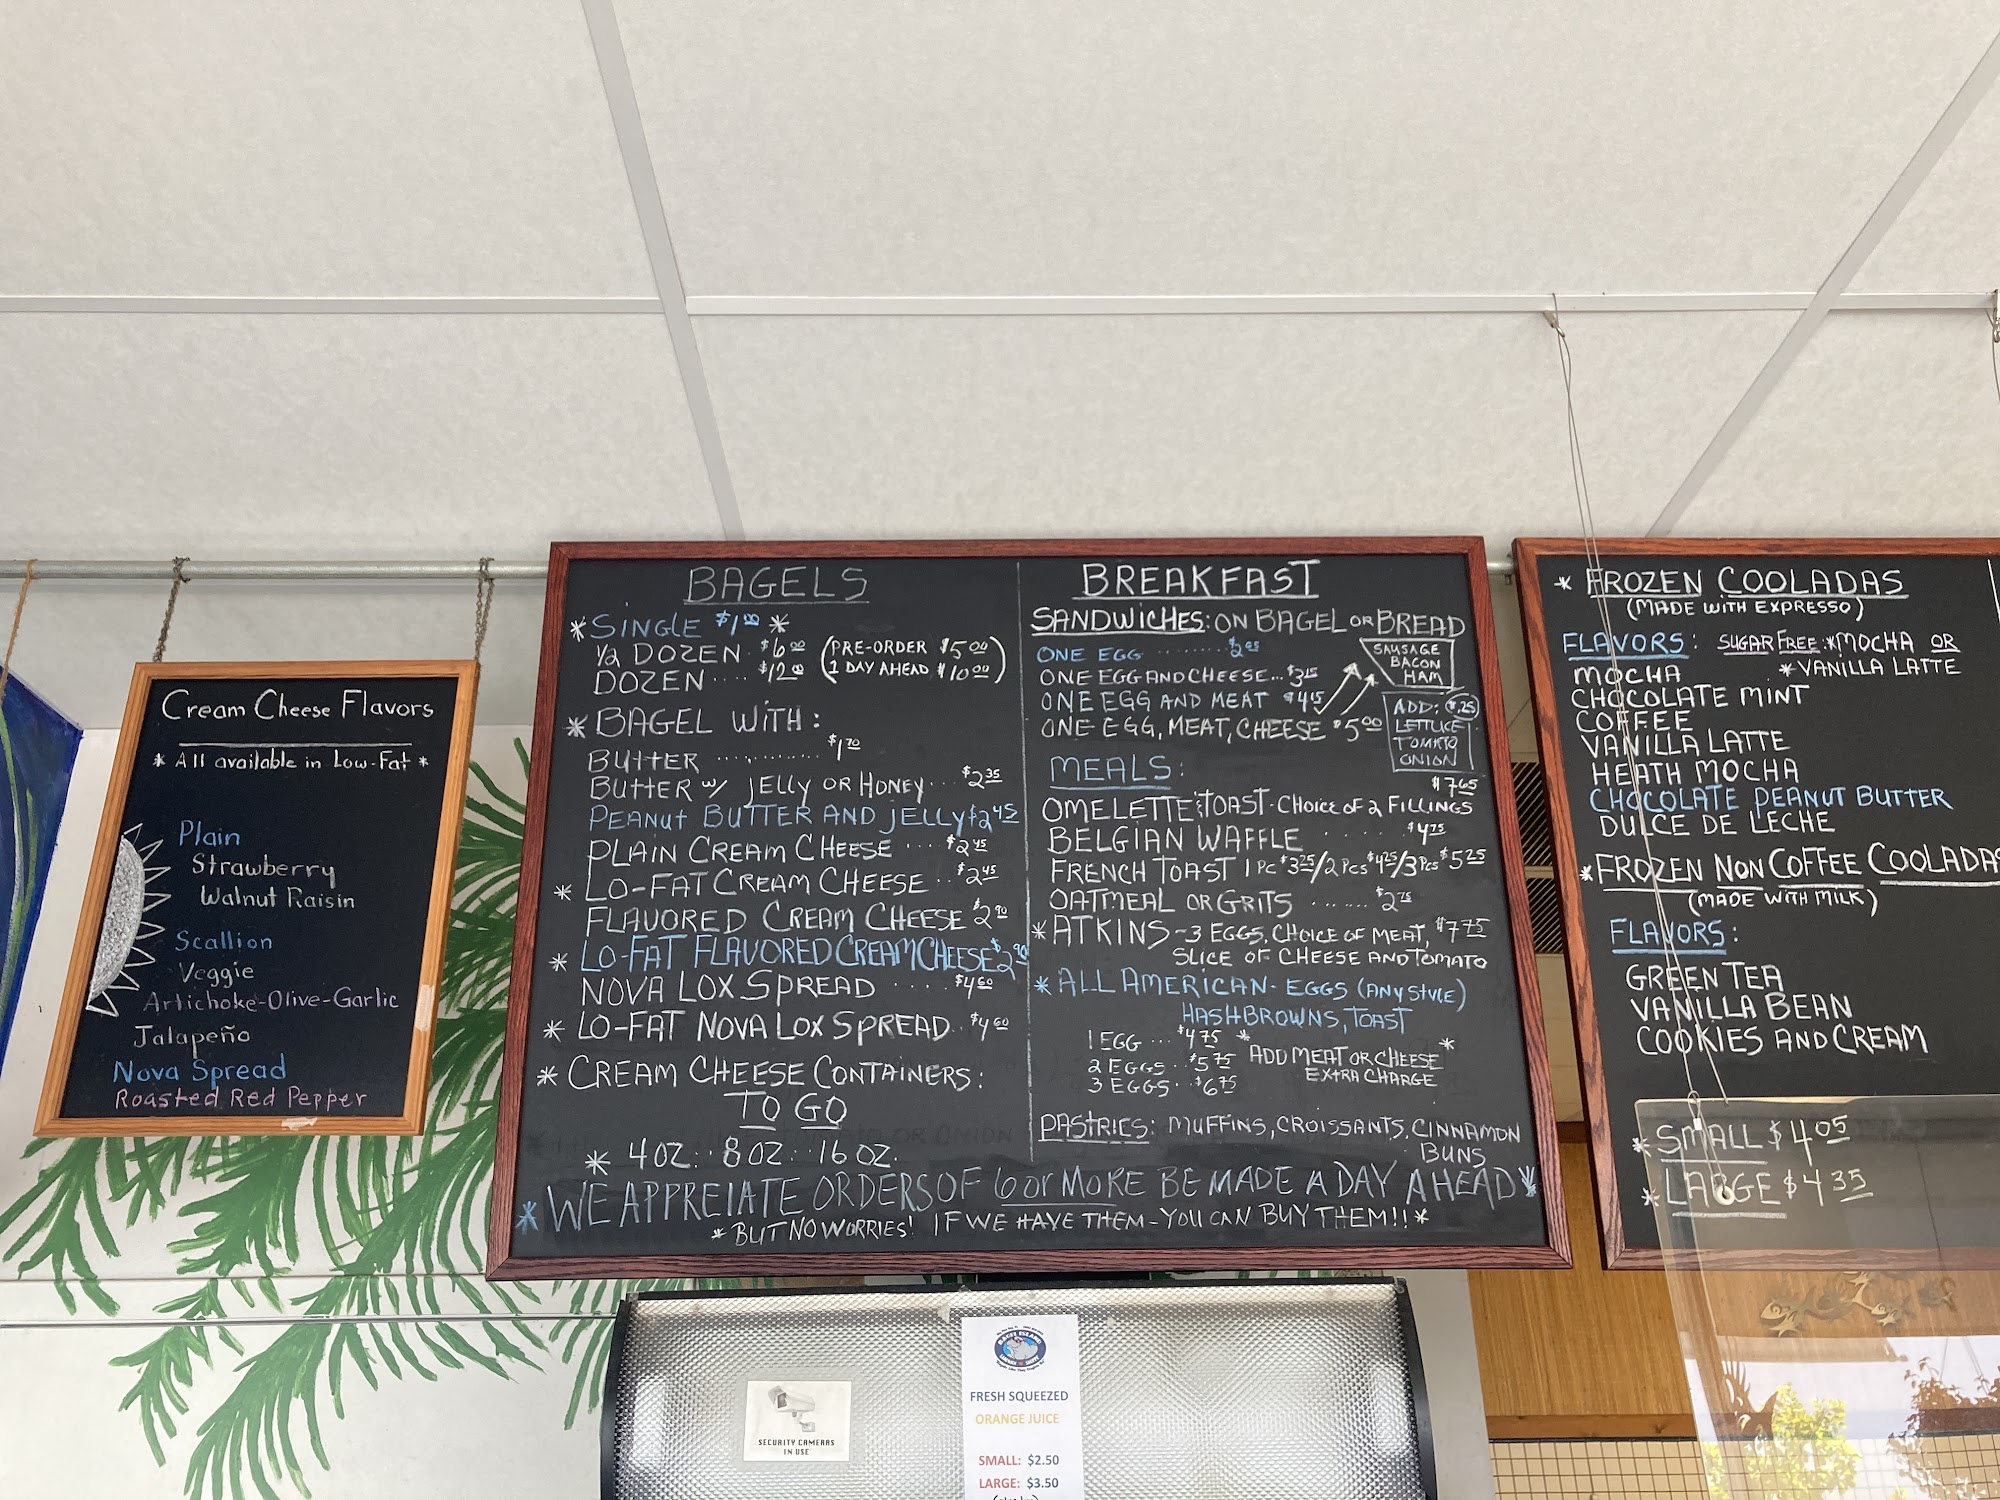 Cream Cheese Flavors
* All available in Low-Fat *
Plain
Strawberry
Walnut Raisin
Scallion
Veggie
Artichoke-Olive-Garlic
Jalapeño
Nova Spread
Roasted Red Pepper
BAGELS
* SINGLE $1.00 *
1/2 DOZEN $6.00 (PRE-ORDER $5.00
DOZEN.... $12.00 1 DAY AHEAD $10.00)
* BAGEL WITH:
BUTTER ........... $1.70
BUTTER W/ JELLY OR HONEY... $2.35
PEANUT BUTTER AND JELLY $2.45
PLAIN CREAM CHEESE ... $2.45
* LO-FAT CREAM CHEESE .. $2.45
FLAVORED CREAM CHEESE $2.90
* LO-FAT FLAVORED CREAM CHEESE $2.90
NOVA LOX SPREAD .... $4.60
* LO-FAT NOVA LOX SPREAD.. $4.60
* CREAM CHEESE CONTAINERS:
TO GO
* 4 OZ.. 8 OZ.. 16 OZ.
BREAKFAST
SANDWICHES: ON BAGEL OR BREAD
ONE EGG ......... $2.05
ONE EGG AND CHEESE... $3.15
ONE EGG AND MEAT $4.15
ONE EGG, MEAT, CHEESE $5.00
SAUSAGE
BACON
HAM
ADD: $.25
LETTUCE
TOMATO
ONION
MEALS:
OMELETTE & TOAST - CHOICE OF 2 FILLINGS $7.65
BELGIAN WAFFLE ..... $4.75
FRENCH TOAST 1 PC $3.25/2 PCS $4.25/3 PCS $5.25
OATMEAL OR GRITS ...... $2.75
* ATKINS - 3 EGGS, CHOICE OF MEAT, $7.75
SLICE OF CHEESE AND TOMATO
* ALL AMERICAN - EGGS (ANY STYLE)
HASHBROWNS, TOAST
1 EGG ... $4.75
2 EGGS .. $5.75
3 EGGS .. $6.75
* ADD MEAT OR CHEESE *
EXTRA CHARGE
PASTRIES: MUFFINS, CROISSANTS, CINNAMON
BUNS
* WE APPRECIATE ORDERS OF 6 OR MORE BE MADE A DAY AHEAD *
* BUT NO WORRIES! IF WE HAVE THEM - YOU CAN BUY THEM!! *
* FROZEN COOLADAS
(MADE WITH EXPRESSO)
FLAVORS: SUGAR FREE: *MOCHA OR
*VANILLA LATTE
MOCHA
CHOCOLATE MINT
COFFEE
VANILLA LATTE
HEATH MOCHA
CHOCOLATE PEANUT BUTTER
DULCE DE LECHE
* FROZEN NON COFFEE COOLADAS
(MADE WITH MILK)
FLAVORS:
GREEN TEA
VANILLA BEAN
COOKIES AND CREAM
* SMALL $4.05
* LARGE $4.35
SECURITY CAMERAS
IN USE
FRESH SQUEEZED
ORANGE JUICE
SMALL: $2.50
LARGE: $3.50